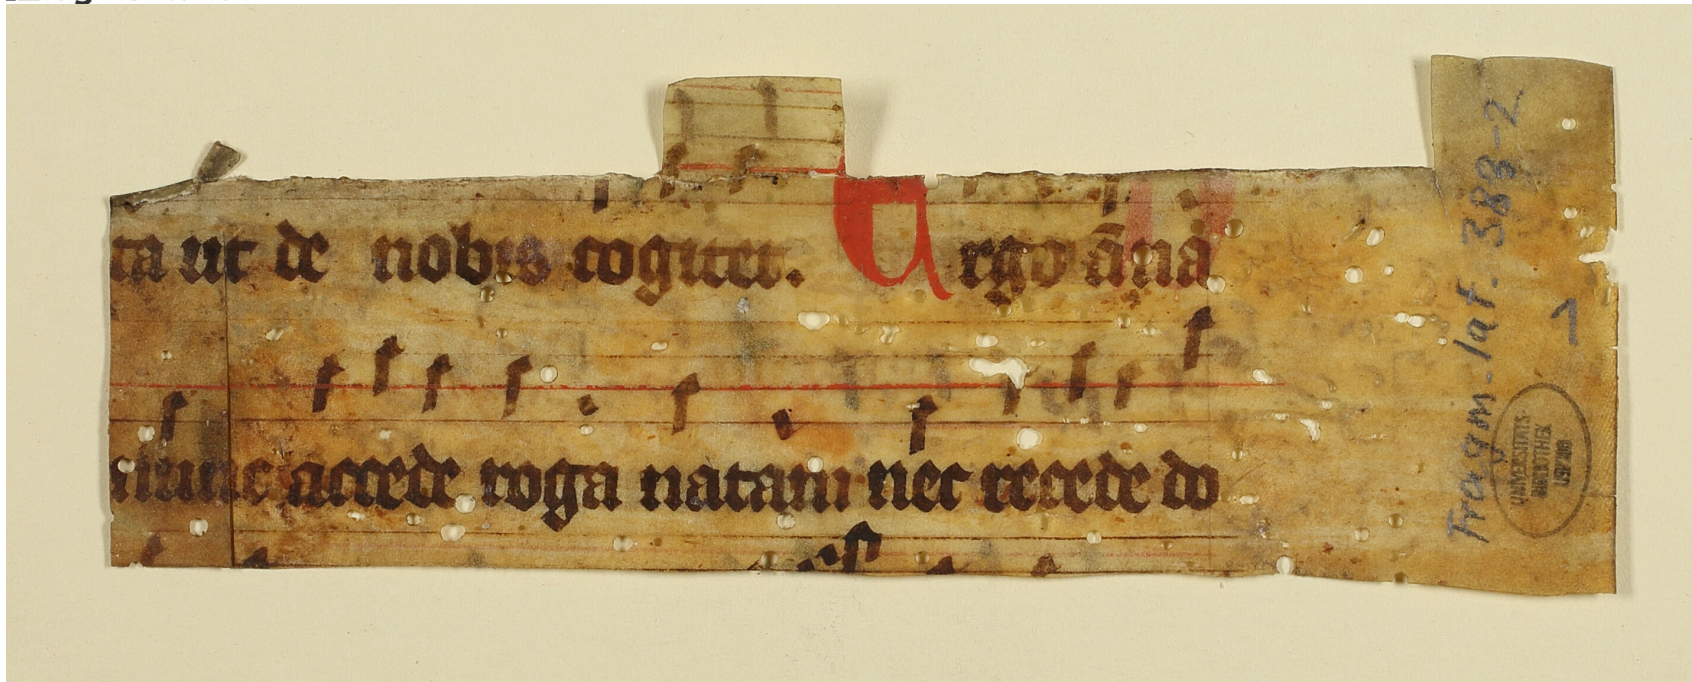 ta ut de nobis cogitet. Ergo ãnã
nunc accede roga natam nec recede do
Fragm. lat. 388-2
1
UNIVERSITÄTS
BIBLIOTHEK